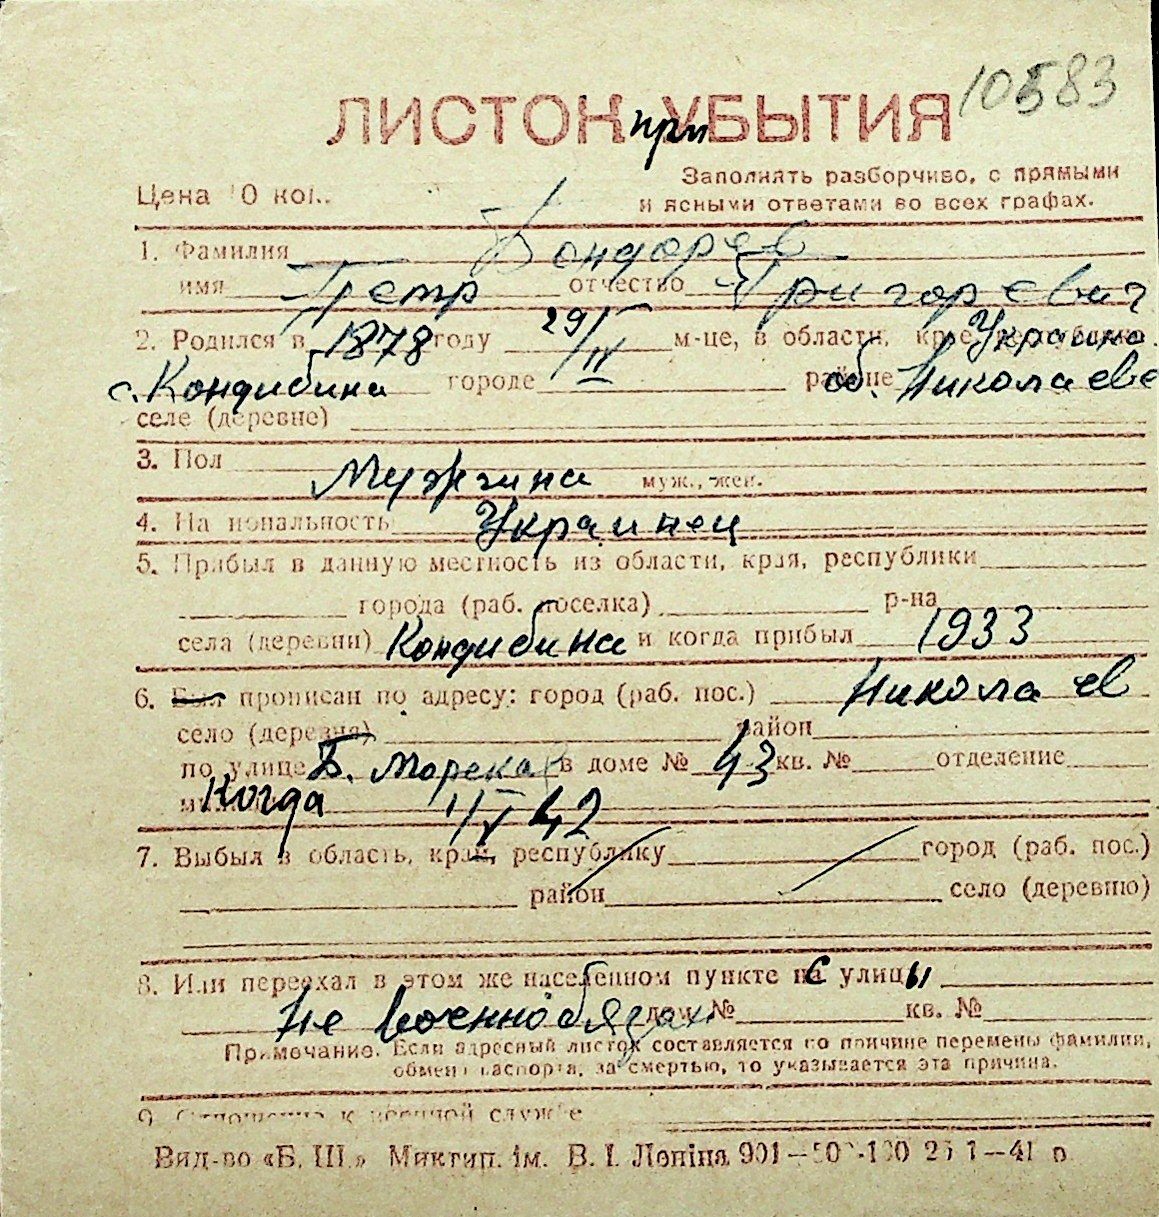 10583
ЛИСТОК при УБЫТИЯ
Цена 10 коп.
Заполнять разборчиво, с прямыми
и ясными ответами во всех графах.
1. Фамилия Бондарев
имя Петр отчество Григоревич
2. Родился в 1878 году 29/IV м-це, в области, крае, Украина
с. Кондибина городе районе об. Николаеве
селе (деревне)
3. Пол Мужчина муж., жен.
4. Национальность Украинец
5. Прибыл в данную местность из области, края, республики
города (раб. поселка) р-на
села (деревни) Кондибина и когда прибыл 1933
6. Был прописан по адресу: город (раб. пос.) Николаев
село (деревня) район
по улице Б. Морская в доме № 43 кв. № отделение
Когда 1/IV 42
7. Выбыл в область, край, республику город (раб. пос.)
район село (деревню)
8. Или переехал в этом же населенном пункте с улицы
Не военнообязан дом № кв. №
Примечание. Если адресный листок составляется по причине перемены фамилии,
обмена паспорта, за смертью, то указывается эта причина.
9. Отношение к военной службе
Вид-во «Б. Ш.» Миктип. ім. В. І. Леніна 901—